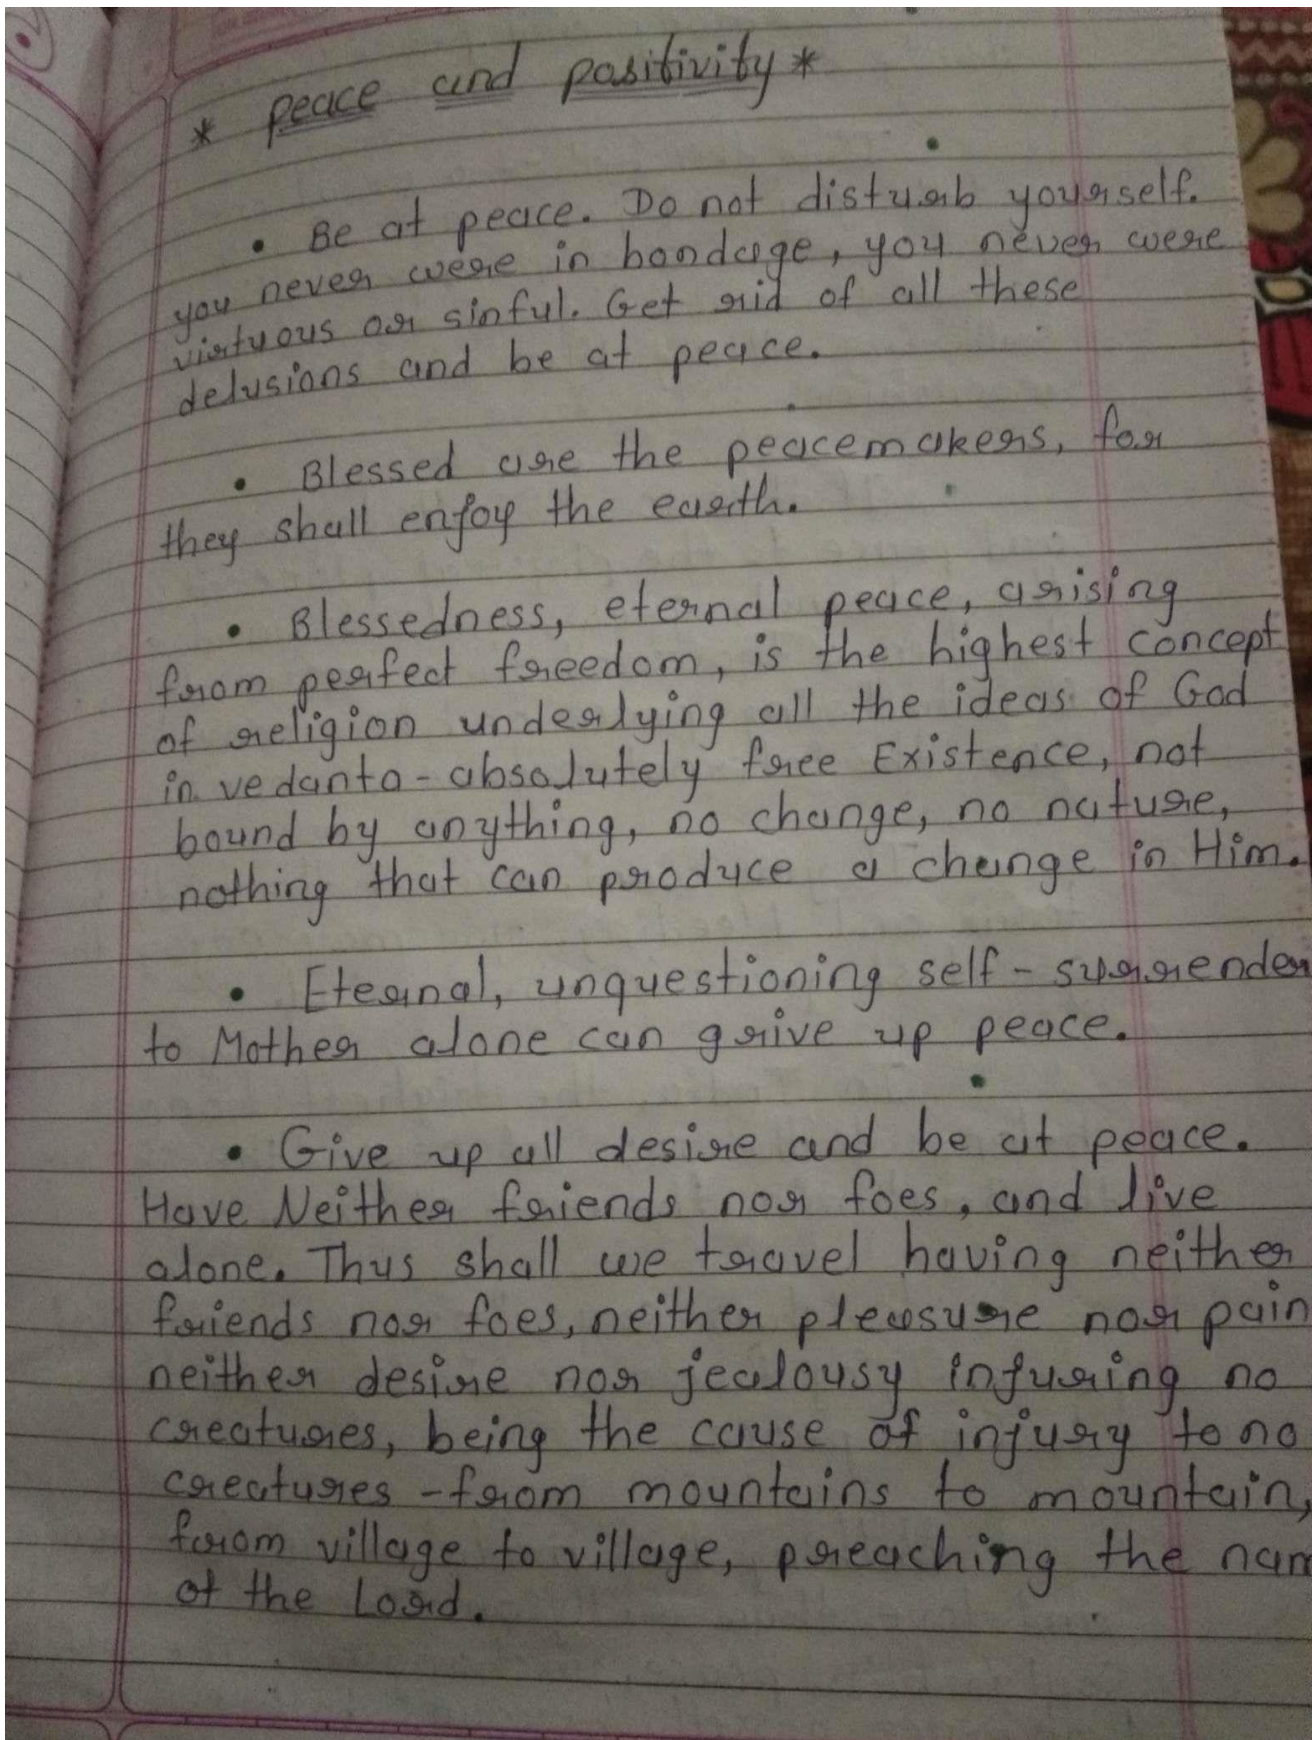 * peace and positivity *
• Be at peace. Do not disturb yourself.
you never were in bondage, you never were
virtuous or sinful. Get rid of all these
delusions and be at peace.
• Blessed are the peacemakers, for
they shall enjoy the earth.
• Blessedness, eternal peace, arising
from perfect freedom, is the highest concept
of religion underlying all the ideas of God
in vedanta - absolutely free Existence, not
bound by anything, no change, no nature,
nothing that can produce a change in Him.
• Eternal, unquestioning self - surrender
to Mother alone can grive up peace.
• Give up all desire and be at peace.
Have Neither friends nor foes, and live
alone. Thus shall we travel having neither
friends nor foes, neither pleasure nor pain
neither desire nor jealousy infuring no
creatures, being the cause of injury to no
creatures - from mountains to mountain,
from village to village, preaching the nam
of the Lord.